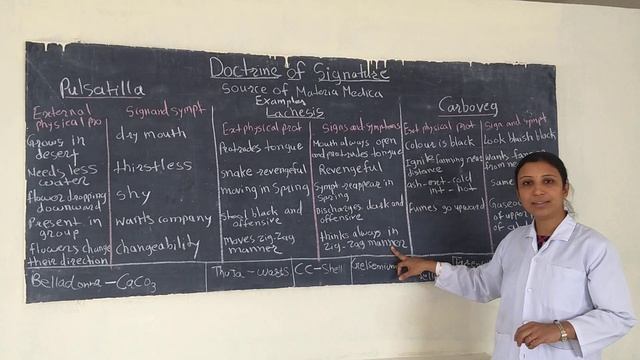 Doctrine of Signature
Source of Materia Medica
Examples
Pulsatilla
External physical pro
Sign and sympt
Grows in desert
dry mouth
Needs less water
thirstless
flower dropping downward
shy
Present in group
wants company
flowers change their direction
changeability
Lachesis
Ext physical prot
Signs and symptoms
Protrudes tongue
Mouth always open and protrudes tongue
snake-revengeful
Revengeful
moving in Spring
Sympt reappear in Spring
black and offensive
Discharges dark and offensive
moves zig-zag manner
thinks always in zig-zag manner
Carboveg
Ext physical prot
Sign and sympt
colour is black
Look bluish black
distance
wants
ash
hot
fumes go upward
of
Belladonna - CaCO3
Thuja - warts
CC-Shell
Gelsemium